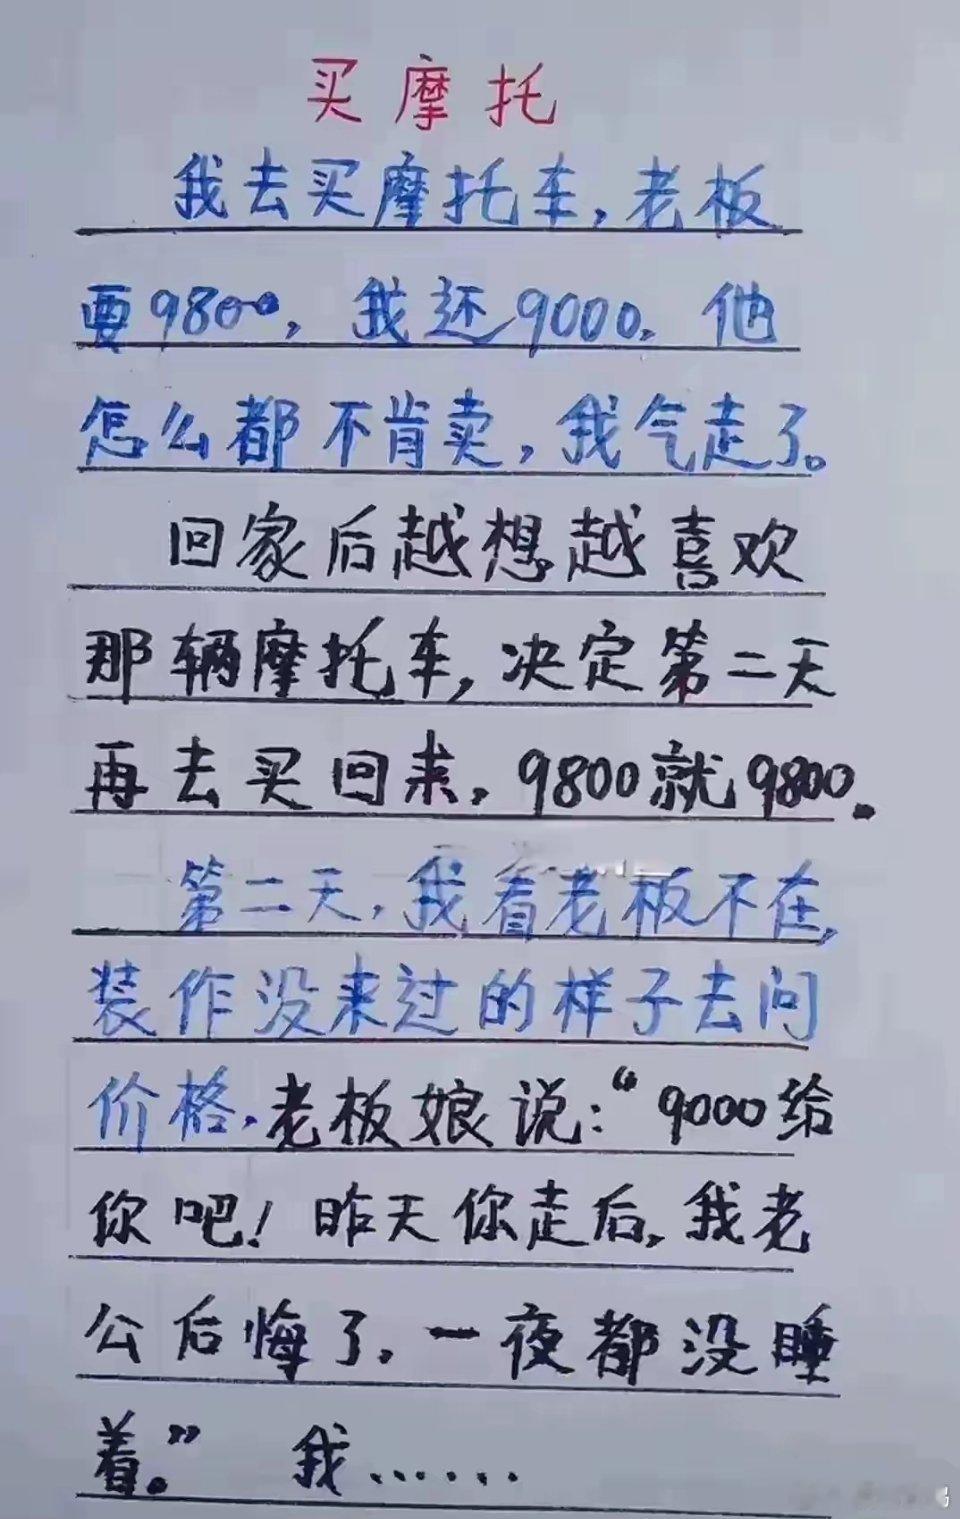 买摩托
我去买摩托车，老板
要9800，我还9000，他
怎么都不肯卖，我气走了。
回家后越想越喜欢
那辆摩托车，决定第二天
再去买回来，9800就9800。
第二天，我看老板不在，
装作没来过的样子去问
价格，老板娘说：“9000给
你吧！昨天你走后，我老
公后悔了，一夜都没睡
着。” 我……